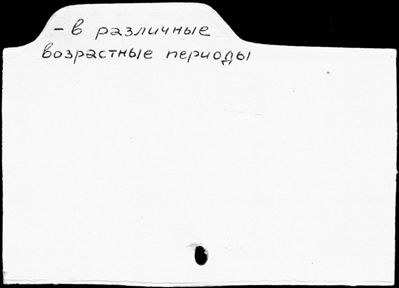 - в различные
возрастные периоды